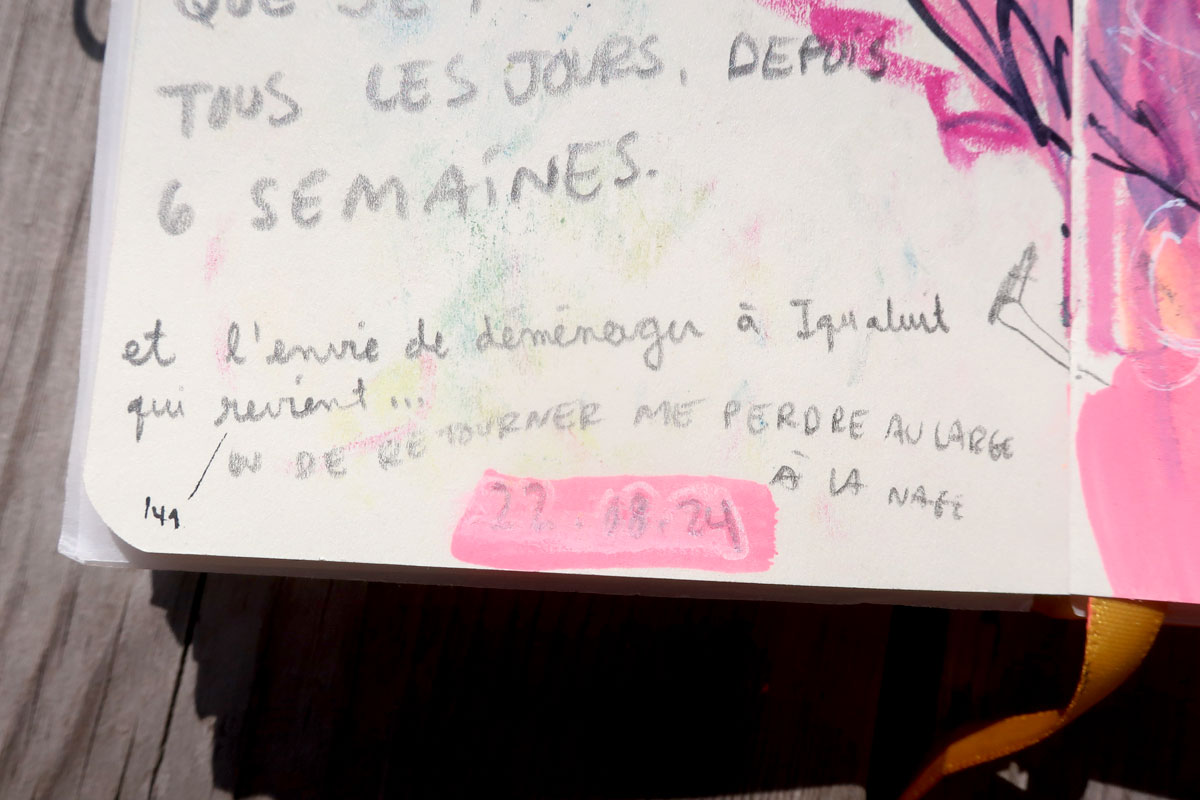 QUE JE
TOUS LES JOURS, DEPUIS
6 SEMAINES.
et l'envie de déménager à Iqualuit
qui revient...
OU DE RETOURNER ME PERDRE AU LARGE
À LA NAGE
22. .24